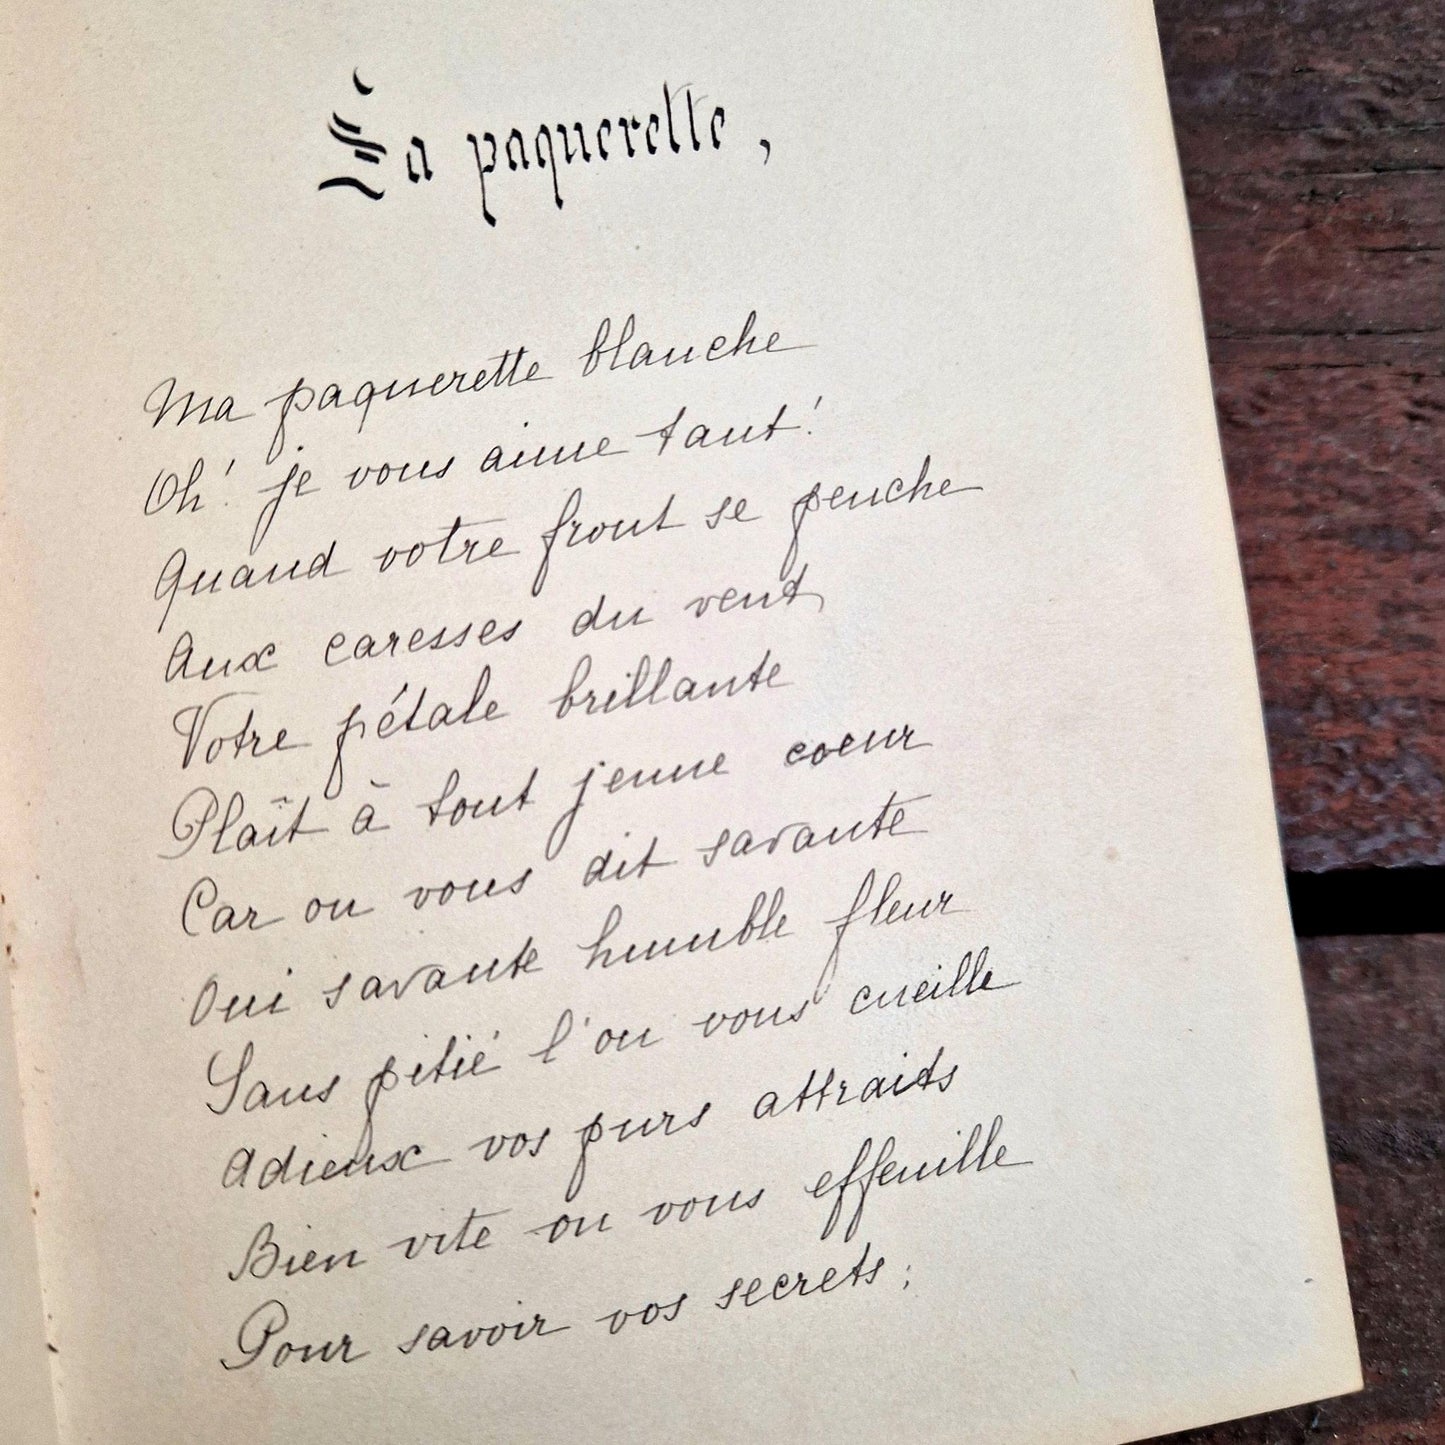 La paquerette,
Ma paquerette blanche
Oh! je vous aime tant!
Quand votre front se penche
Aux caresses du vent
Votre pétale brillante
Plaît à tout jeune coeur
Car on vous dit savante
Oui savante humble fleur
Sans pitié l'on vous cueille
Adieux vos purs attraits
Bien vite on vous effeuille
Pour savoir vos secrets;